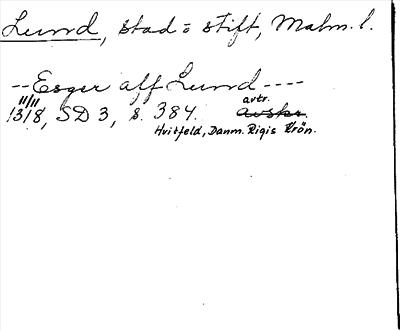 Lund, stad o stift, Malm. l.
-- Esger aff Lund ----
11/11 avtr.
1318, SD 3, s. 384. avskr.
Hvitfeld, Danm. Rigis Krön.